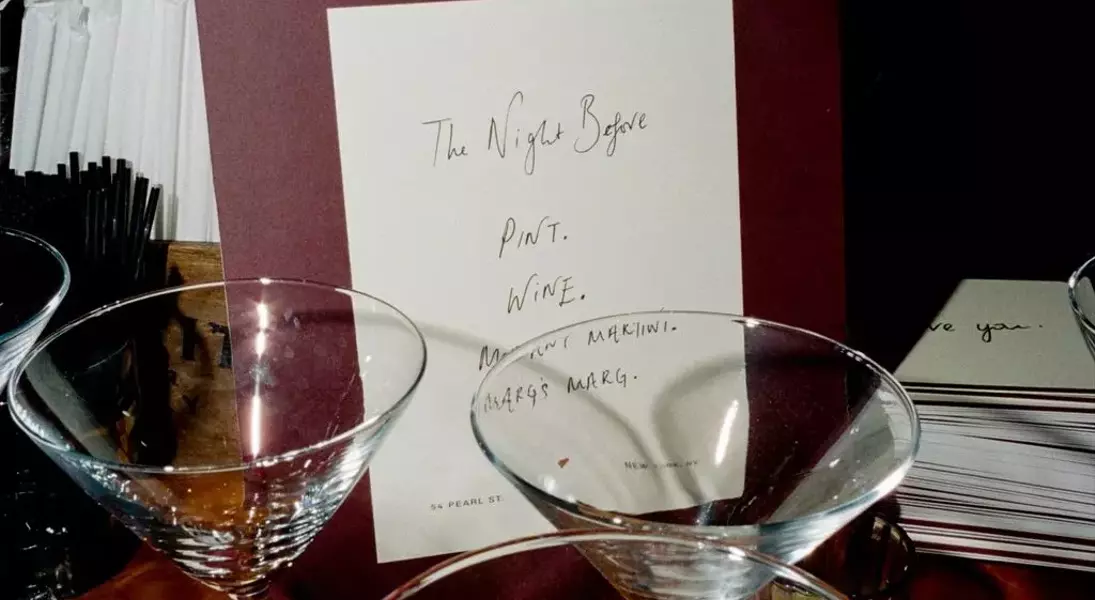 The Night Before
PINT.
WINE.
MARTINI.
MARG'S MARG.
54 PEARL ST.
NEW YORK, NY
ve you.